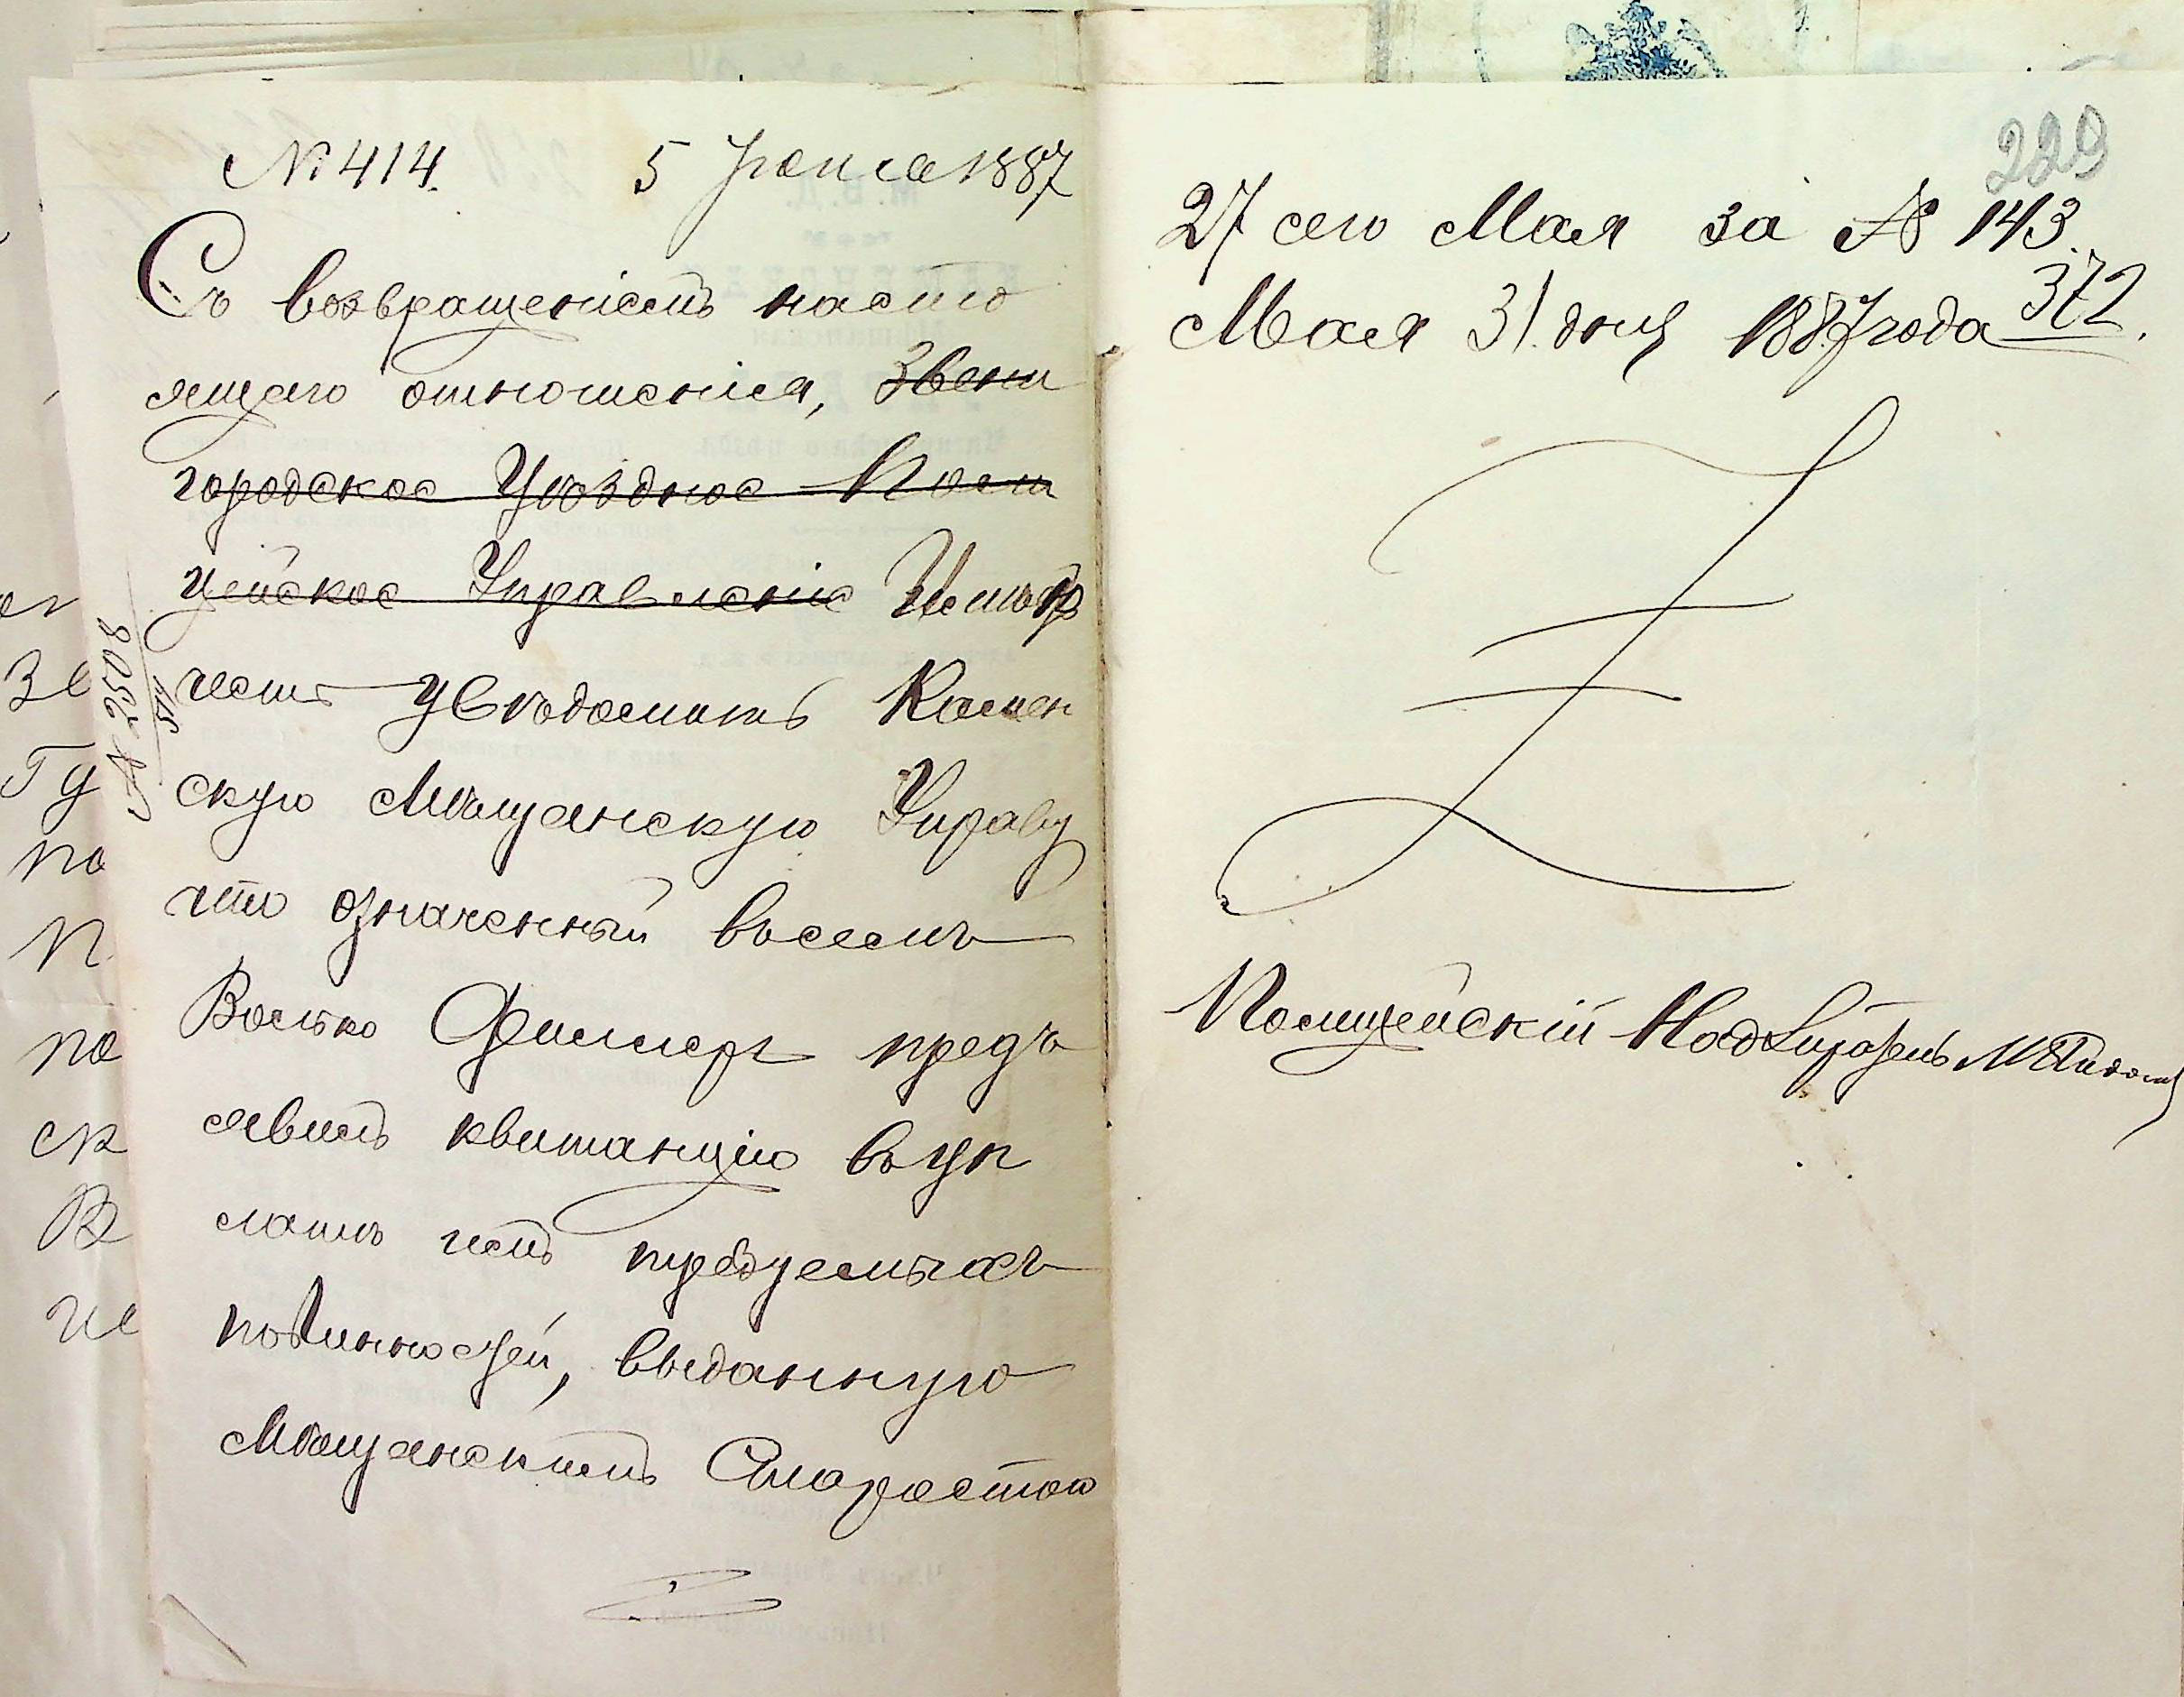 № 414. 5 Іюня 1887
Съ возвращеніемъ насто
ящаго отношенія, Звени
городское Уѣздное Поли
цейское Управленіе Имѣю
честь увѣдомить Камен
скую Мѣщанскую Управу
что означенный въ семъ
Васько Фишеръ предъ
явилъ квитанцію въ уп
латѣ имъ требуемыхъ
повинностей, выданную
Мѣщанскимъ Старостою
№ 2508
229
27 сего Мая за № 143.
Мая 31 дня 1887 года 372.
Полицейскій Надзиратель